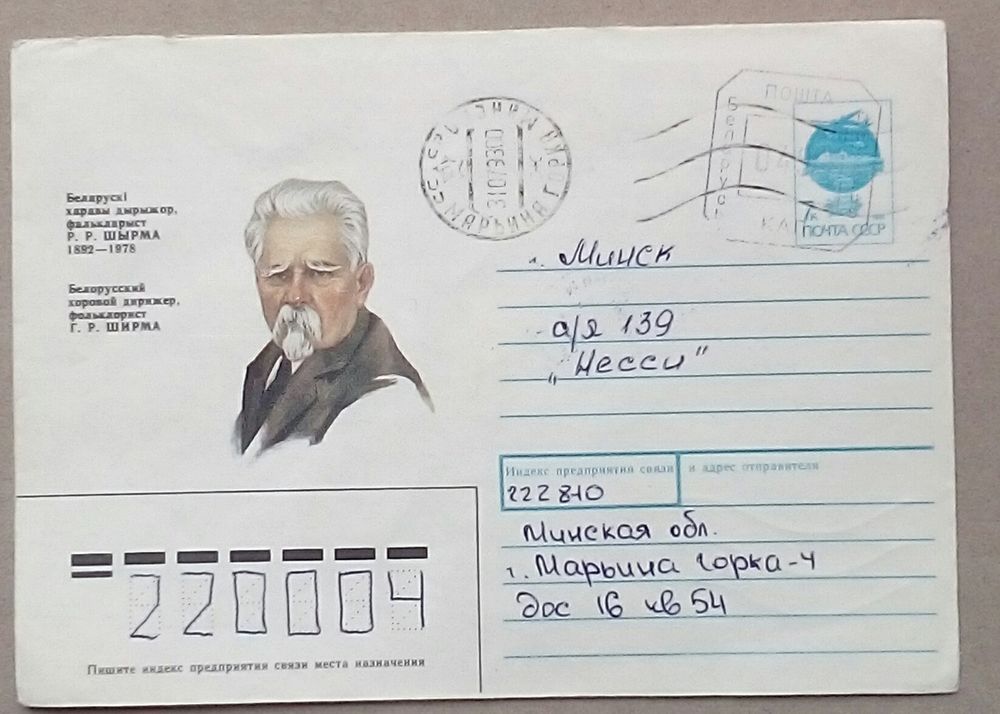 Беларускі
харавы дырыжор,
фалькларыст
Р. Р. ШЫРМА
1892—1978
Белорусский
хоровой дирижер,
фольклорист
Г. Р. ШИРМА
МАРЬИНА ГОРКА
310793
ПОШТА
Беларусь
7к
ПОЧТА СССР
г. Минск
а/я 139
„Несси"
Индекс предприятия связи и адрес отправителя
222810
Минская обл.
г. Марьина Горка-4
дос 16 кв 54
220004
Пишите индекс предприятия связи места назначения